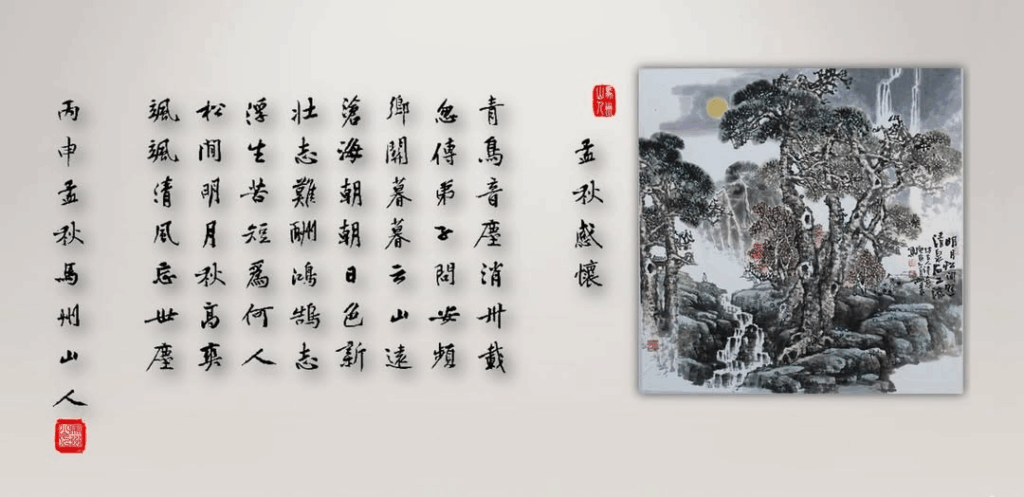 孟秋感懷
青鳥音塵消卅載
忽傳弟子問安頻
鄉關暮暮云山遠
滄海朝朝日色新
壯志難酬鴻鵠志
浮生苦短爲何人
松間明月秋高爽
颯颯清風忘世塵
丙申孟秋馬州山人
明月松間照
清泉石上流